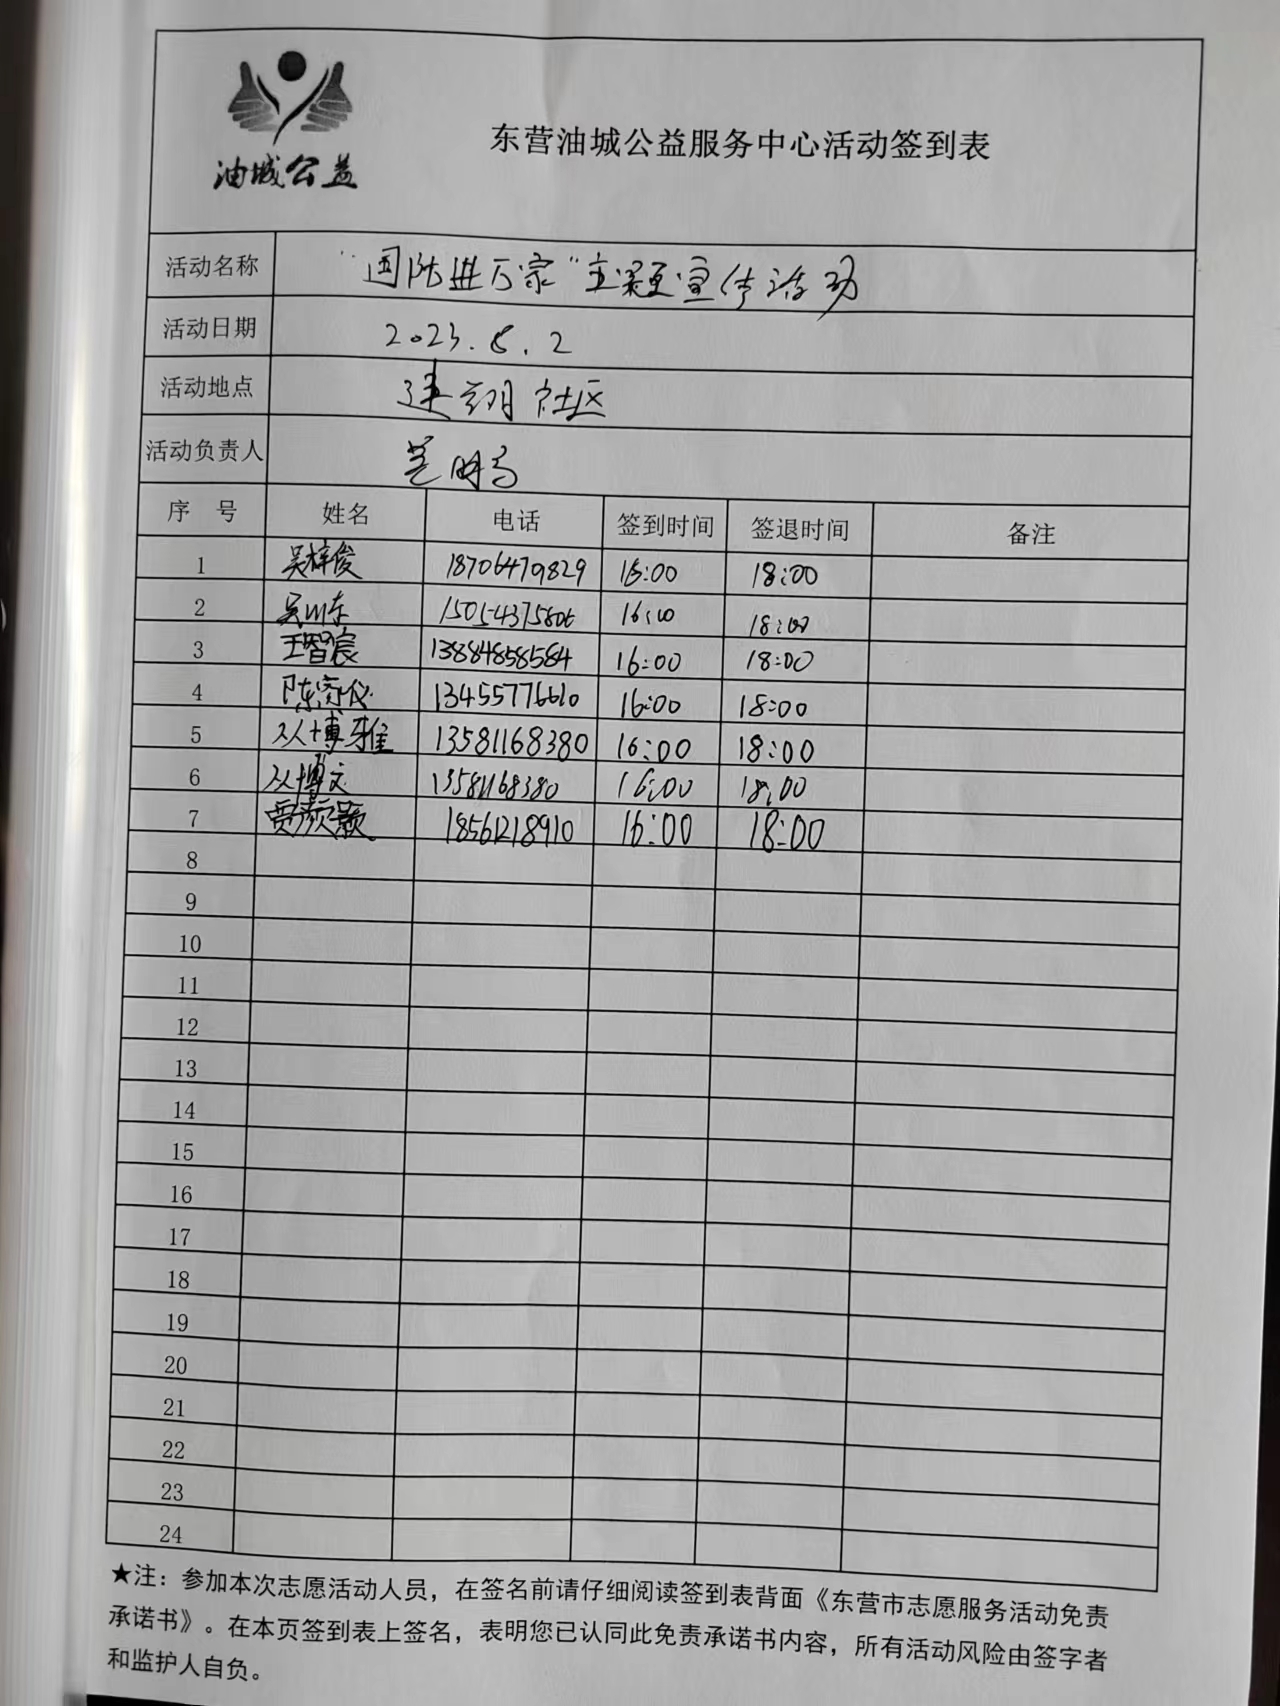 油城公益
东营油城公益服务中心活动签到表
活动名称 “国防进万家”主题宣传活动
活动日期 2023.8.2
活动地点 建翔社区
活动负责人
序 号 姓名 电话 签到时间 签退时间 备注
1 吴梓俊 18706479829 16:00 18:00
2 吴川东 15054375806 16:00 18:00
3 王智宸 13884858584 16:00 18:00
4 陈 仪 13455776610 16:00 18:00
5 丛博雅 13581168380 16:00 18:00
6 丛博文 13581168380 16:00 18:00
7 贾 颢 18561218910 16:00 18:00
8
9
10
11
12
13
14
15
16
17
18
19
20
21
22
23
24
★注：参加本次志愿活动人员，在签名前请仔细阅读签到表背面《东营市志愿服务活动免责
承诺书》。在本页签到表上签名，表明您已认同此免责承诺书内容，所有活动风险由签字者
和监护人自负。